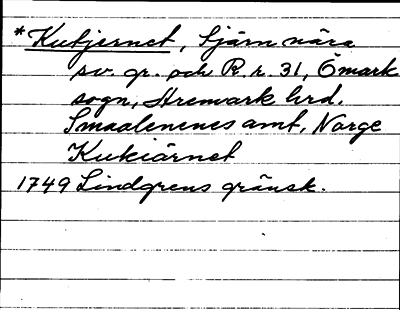 *Kutjernet, Tjärn nära
sv. gr. och R. r. 31, Ömark
sogn, Aremark hrd.
Smaalenenes amt, Norge
Kukiärnet
1749 Lindgrens gränsk.